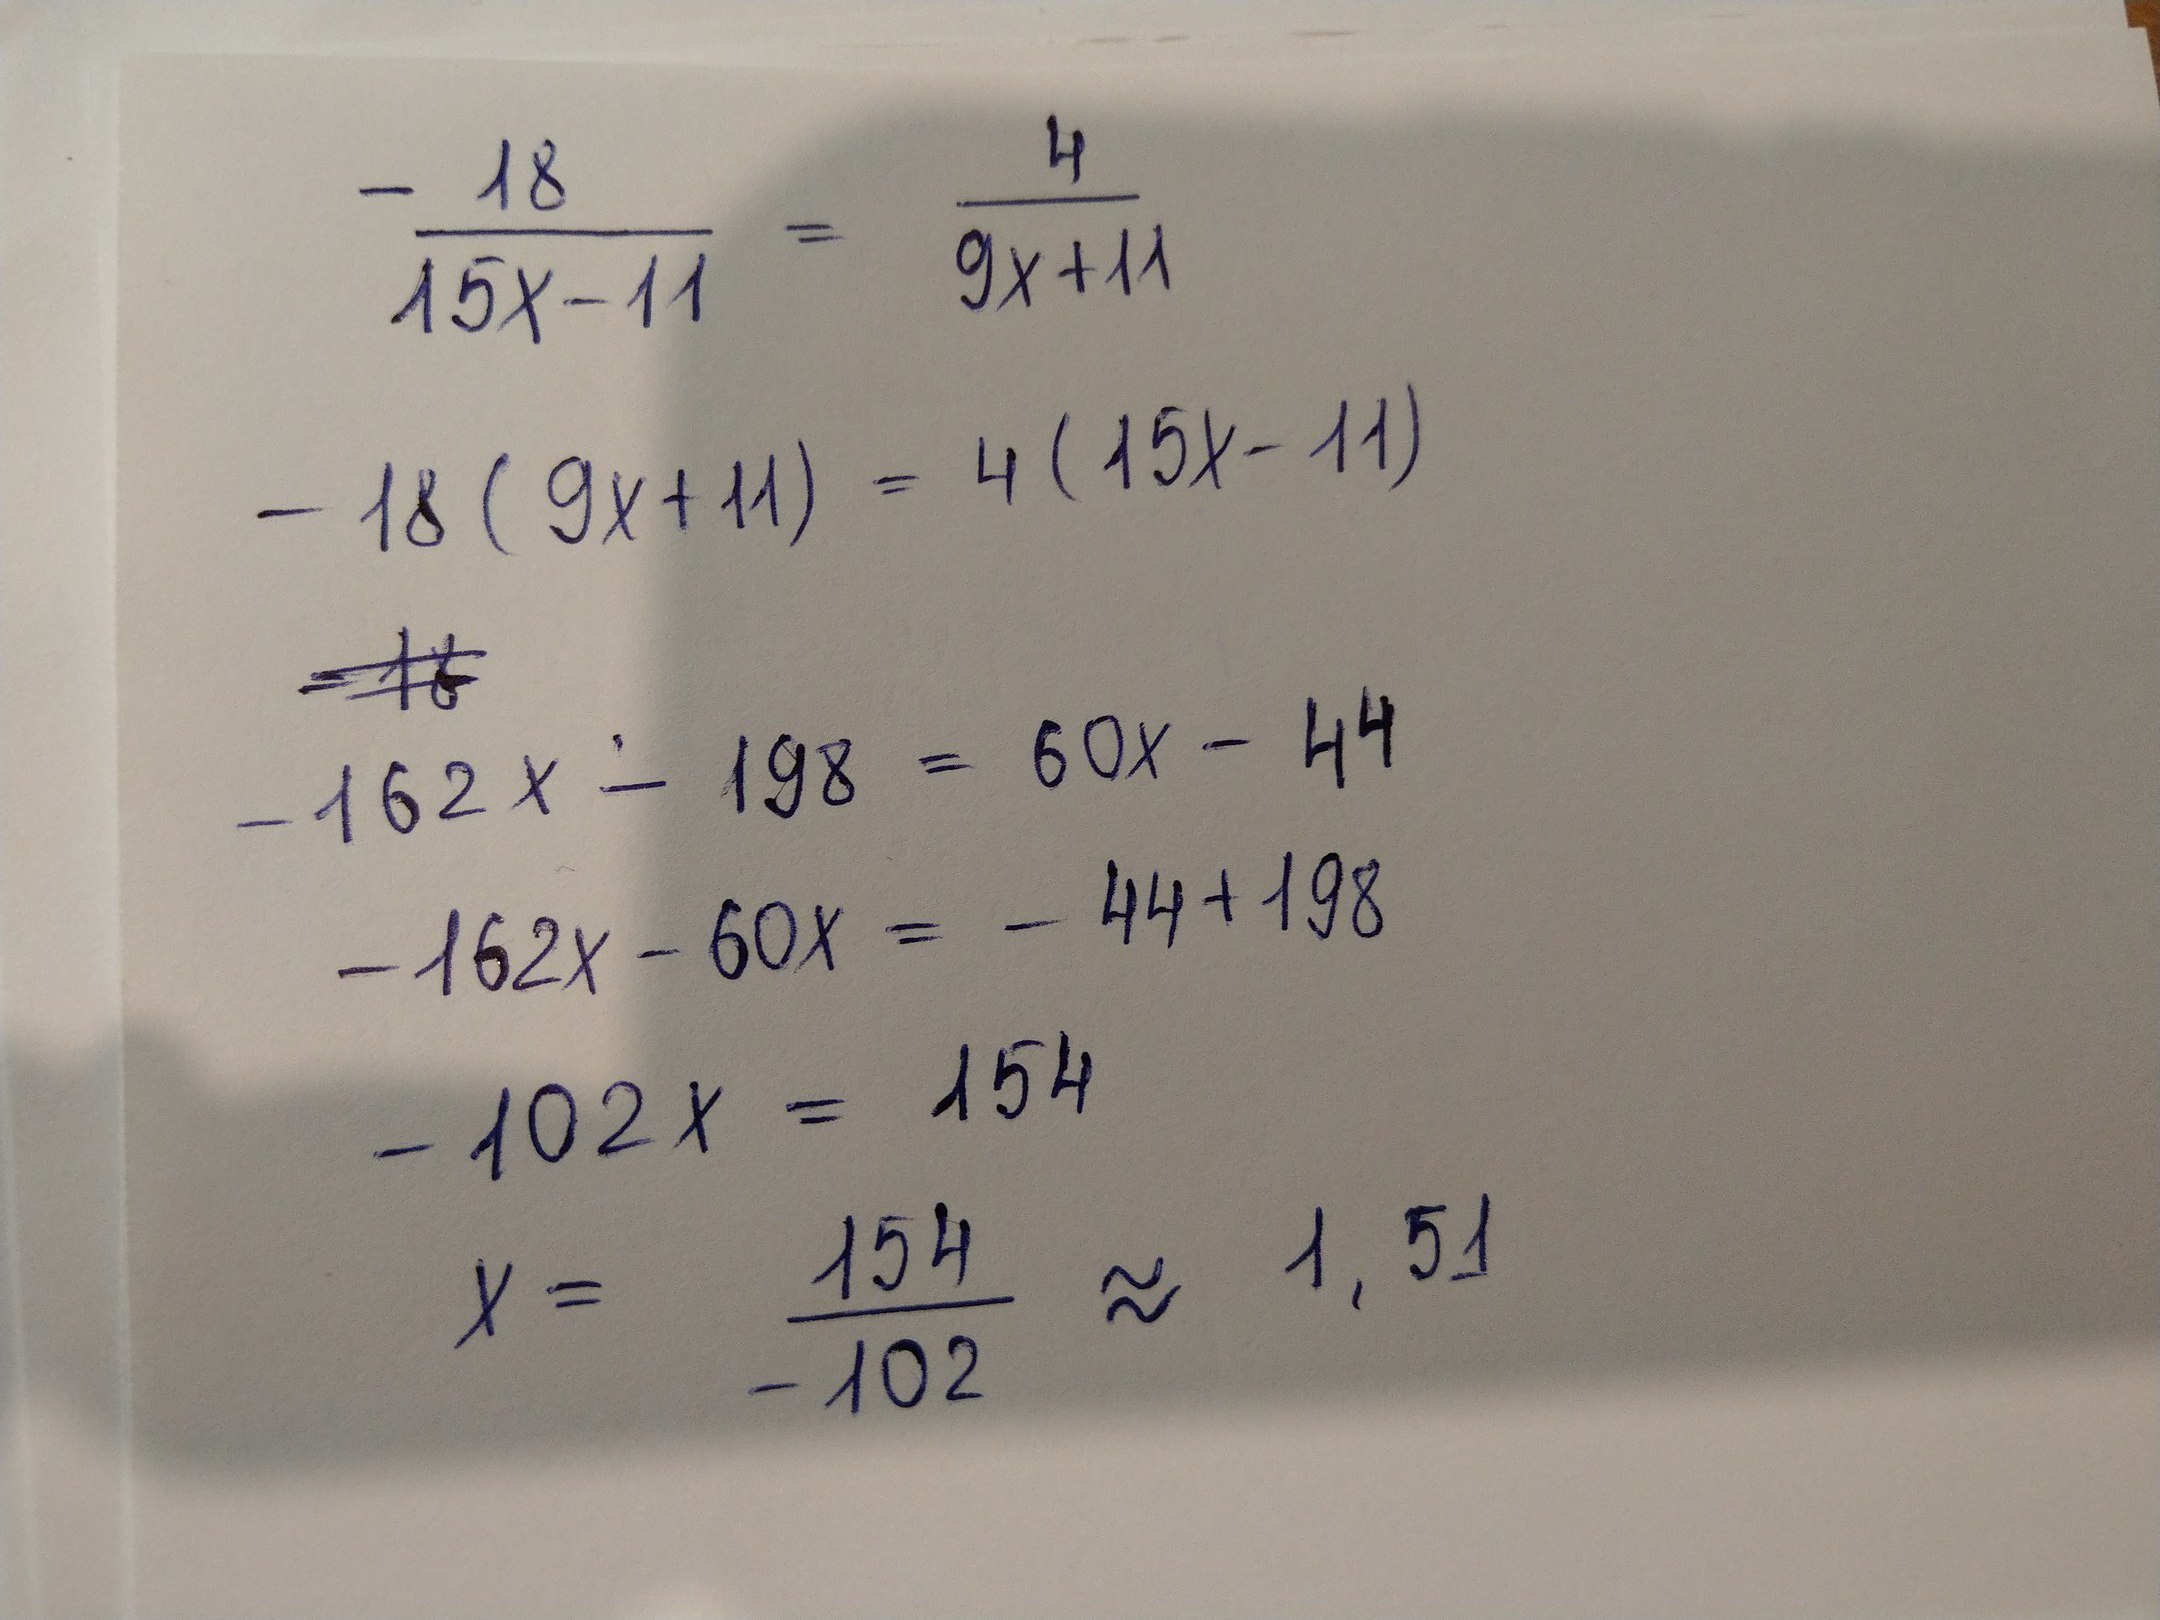 - 18/15x-11 = 4/9x+11
- 18(9x+11) = 4(15x-11)
-162x - 198 = 60x - 44
-162x - 60x = - 44 + 198
-102x = 154
x = 154/-102 ≈ 1,51